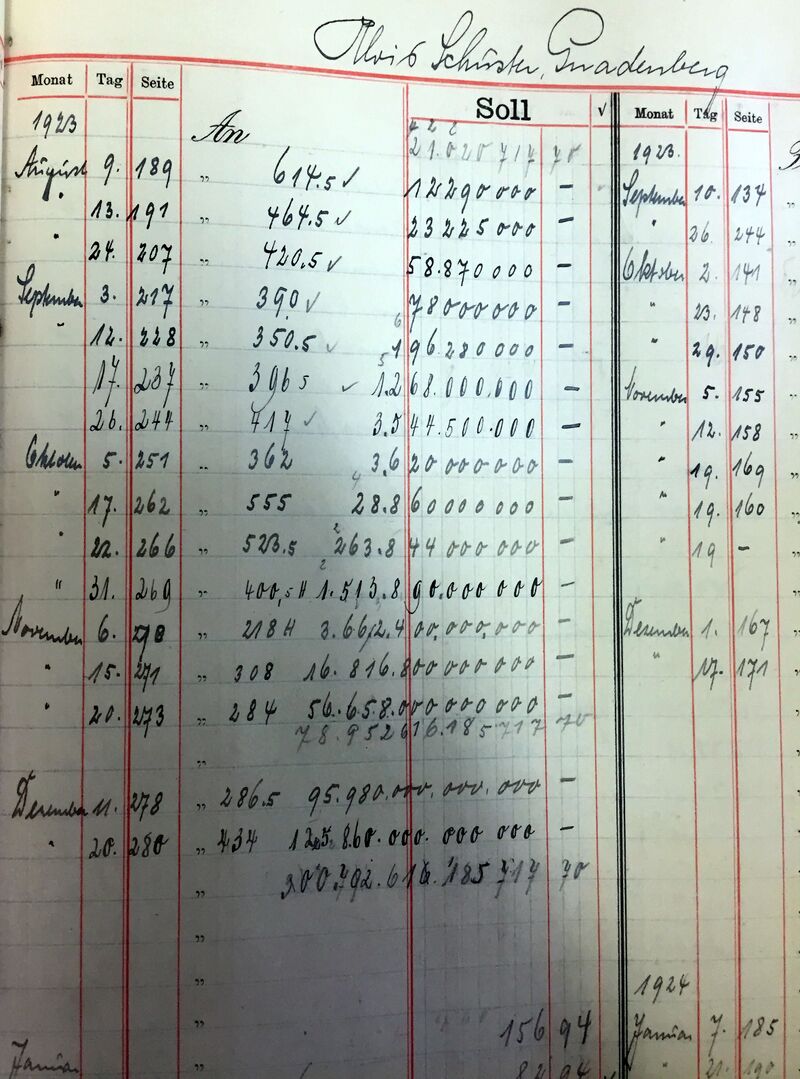 Alois Schuster, Gnadenberg
Monat Tag Seite Soll √ Monat Tag Seite
1923 An 21.020 717 70 1923.
August 9. 189 „ 614.5 ✓ 12290000 — September 10. 134 „
" 13. 191 „ 464.5 ✓ 23225000 — " 26. 244 „
" 24. 207 „ 420.5 ✓ 58.870000 — Oktober 2. 141 „
September 3. 217 „ 390 ✓ 78000000 — " 23. 148 „
" 12. 228 „ 350.5 ✓ 196280000 — " 29. 150 „
17. 237 „ 396 5 ✓ 1.268.000.000 — November 5. 155 „
26. 244 „ 417 ✓ 3.544.500.000 — " 12. 158 „
Oktober 5. 251 „ 362 3.620000000 — " 19. 169 „
" 17. 262 „ 555 28.860000000 — " 19. 160 „
" 22. 266 „ 523.5 263.844000000 — " 19 —
" 31. 269 „ 400,5 H 1.513.890.000000 —
November 6. 270 „ 218 H 3.662.400.000.000 — Dezember 1. 167 „
" 15. 271 „ 308 16.816.800000000 — " 17. 171 „
" 20. 273 „ 284 56.658.000000000 —
78.952616.185717 70
„
Dezember 11. 278 „ 286.5 95.980.000.000.000 —
" 20. 280 „ 434 125.860.000.000000 —
„ 300.792.616.185717 70
„
„
„ 1924
„ 156 94 Januar 7. 185
Januar „ 82 94 " 21. 190